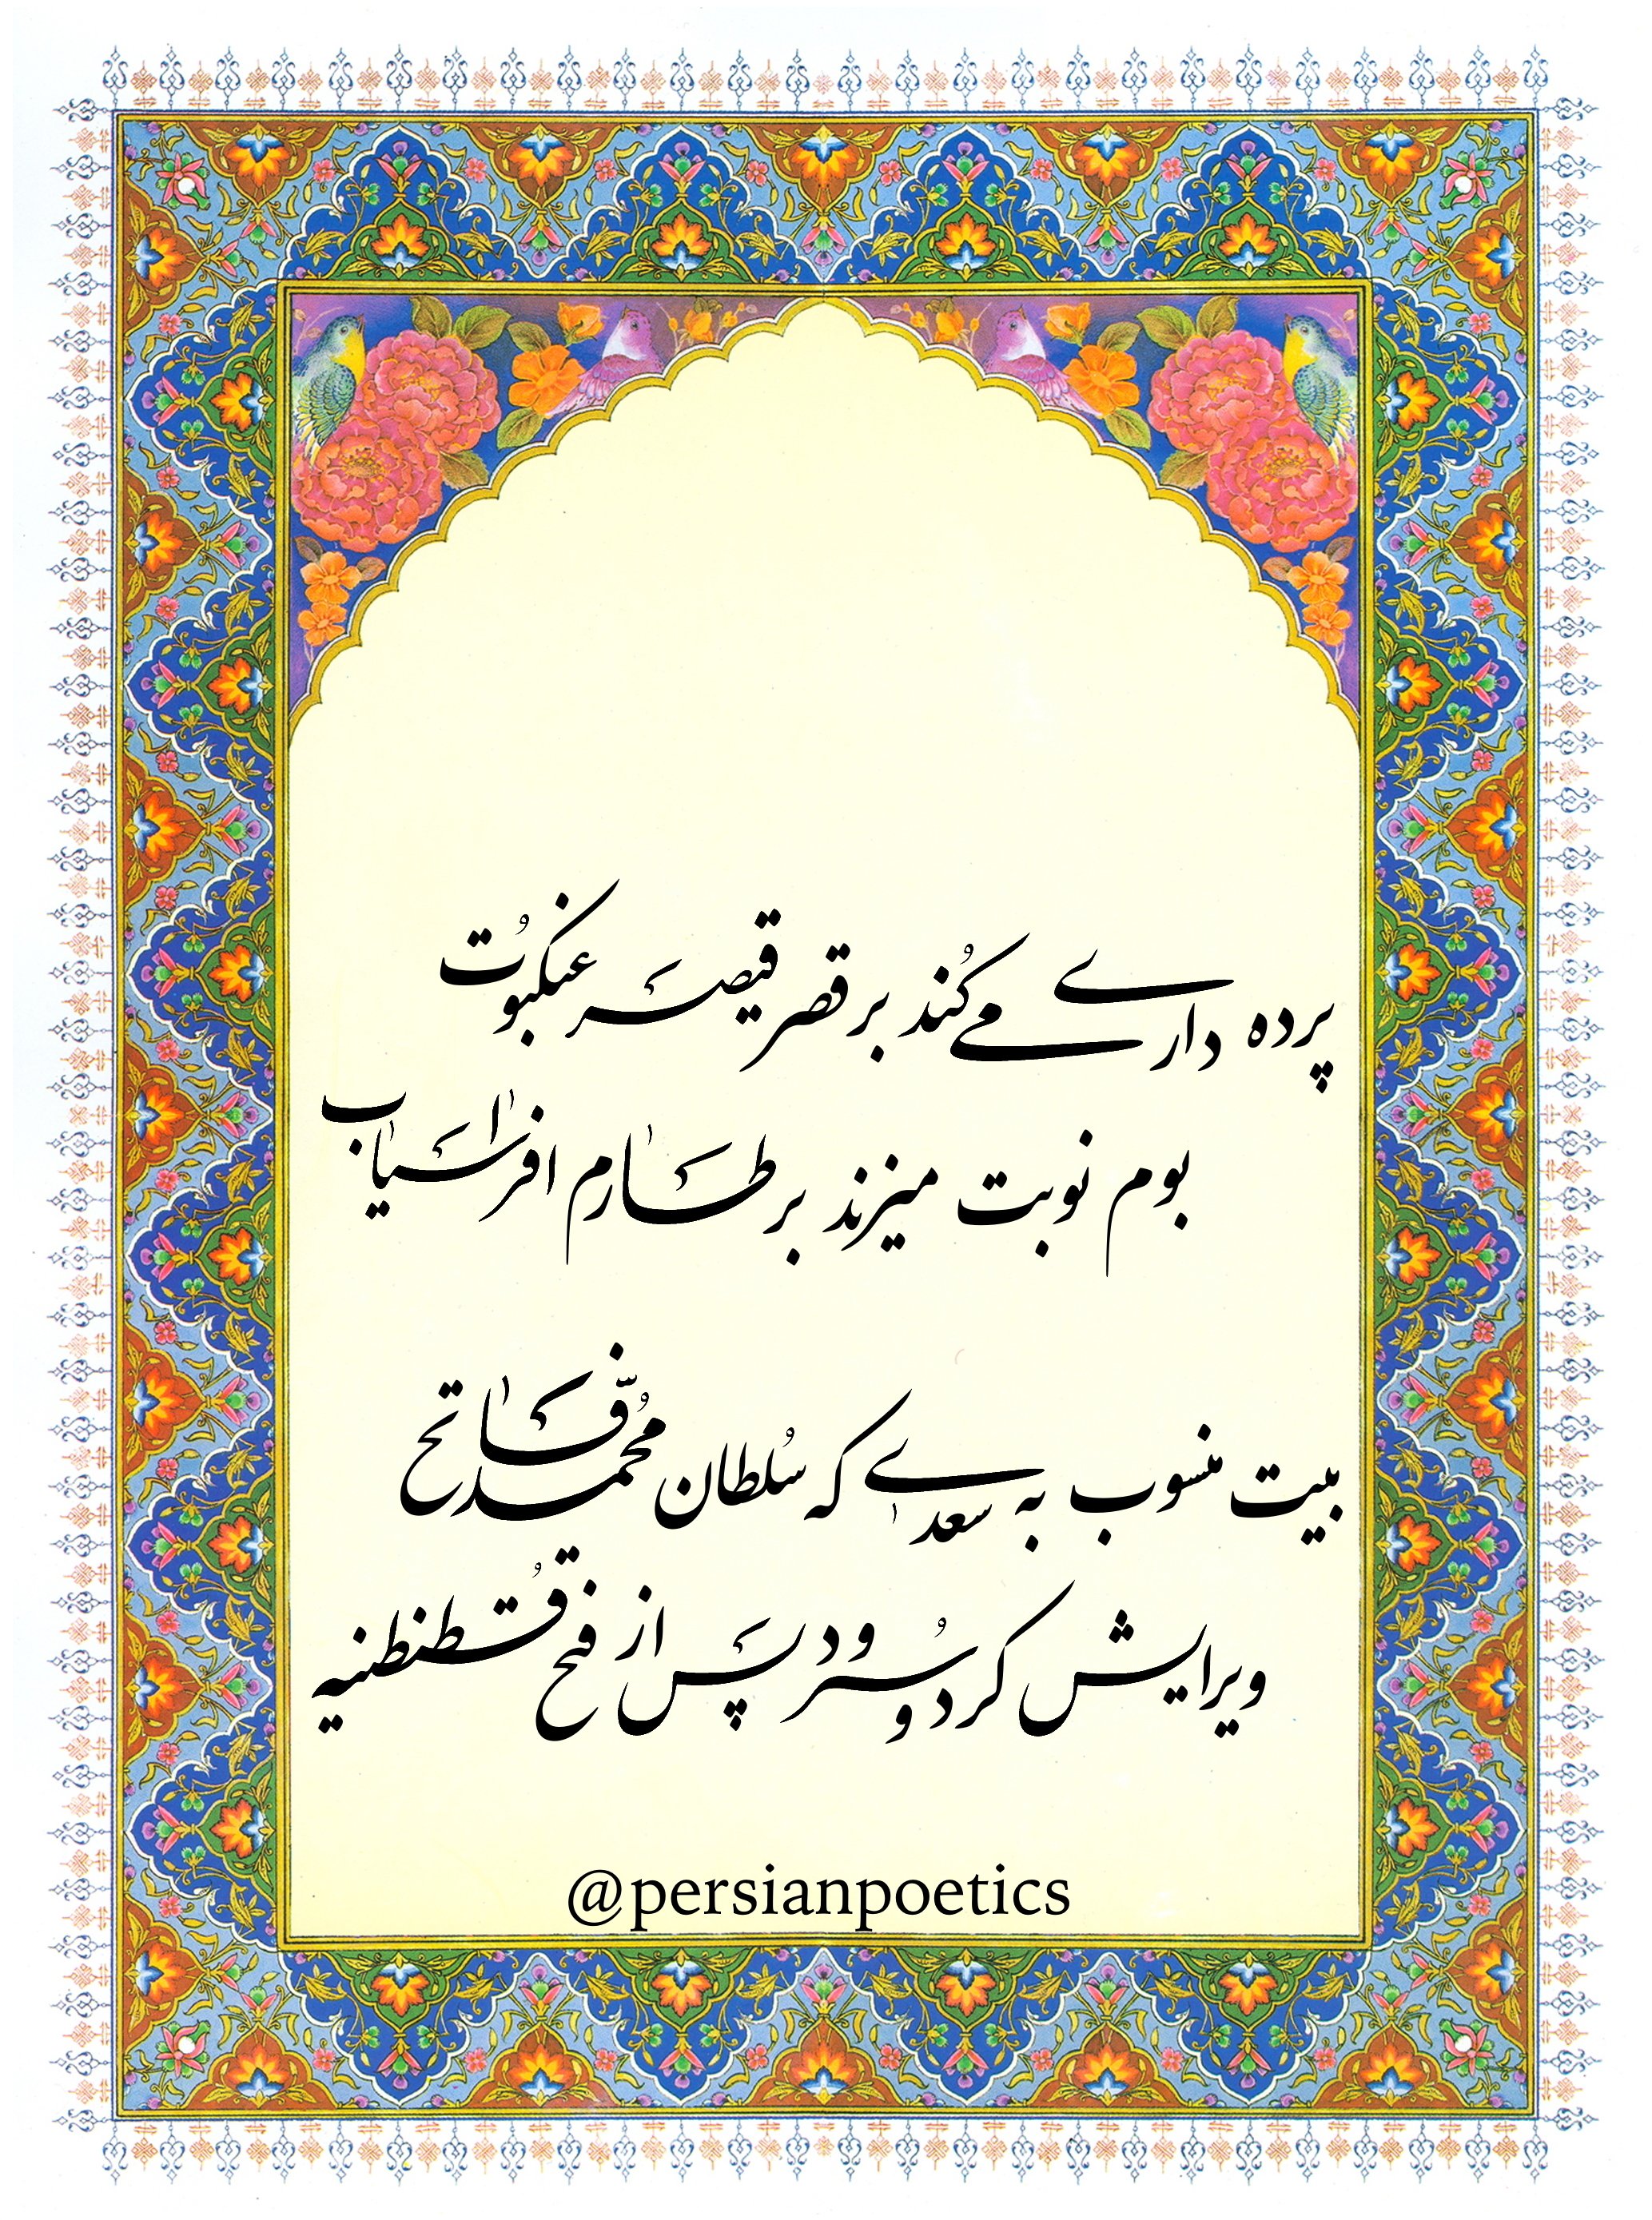 پرده داری می کُند بر قصر قیصر عنکبوُت
بوم نوبت میزند بر طارم افراسیاب
بیت منسوب به سعدی که سُلطان مُحمّد فاتح
ویرایش کرد و سُرود پس از فتح قُسطنطنیه
@persianpoetics